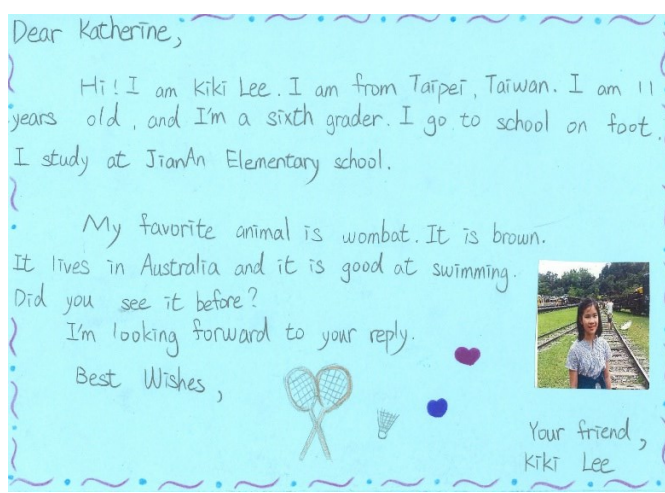 Dear Katherine,
Hi! I am Kiki Lee. I am from Taipei, Taiwan. I am 11
years old, and I'm a sixth grader. I go to school on foot.
I study at JianAn Elementary school.
My favorite animal is wombat. It is brown.
It lives in Australia and it is good at swimming.
Did you see it before?
I'm looking forward to your reply.
Best Wishes,
Your friend,
Kiki Lee